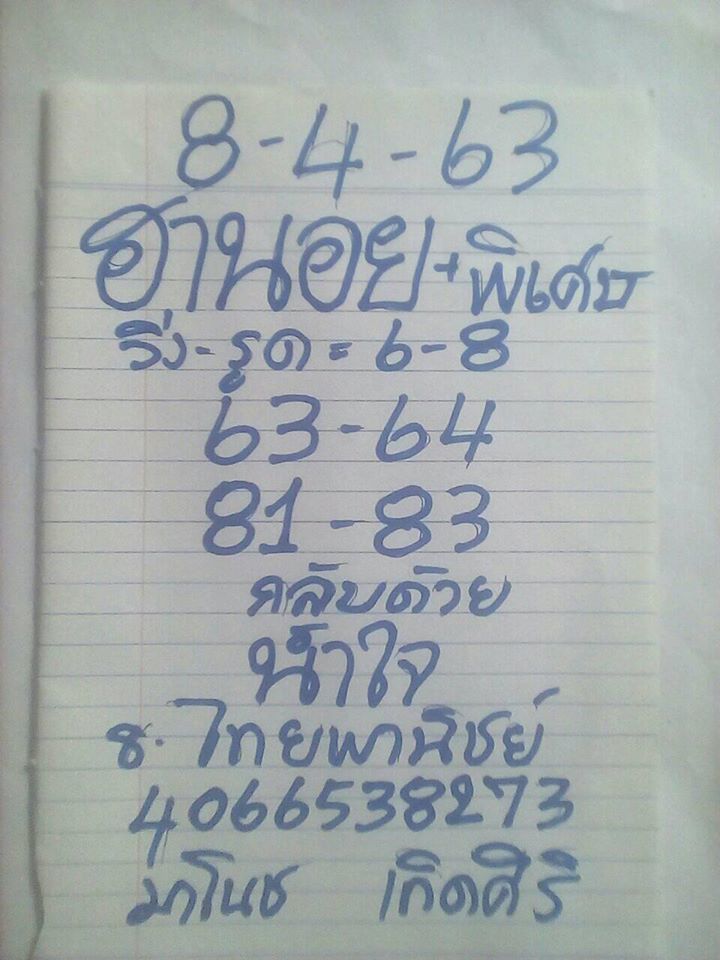 8-4-63
ฮานอย+พิเศษ
วิ่ง-รูด = 6-8
63-64
81-83
กลับด้วย
น้ำใจ
ธ. ไทยพานิชย์
4066538273
มาโนช เกิดศิริ